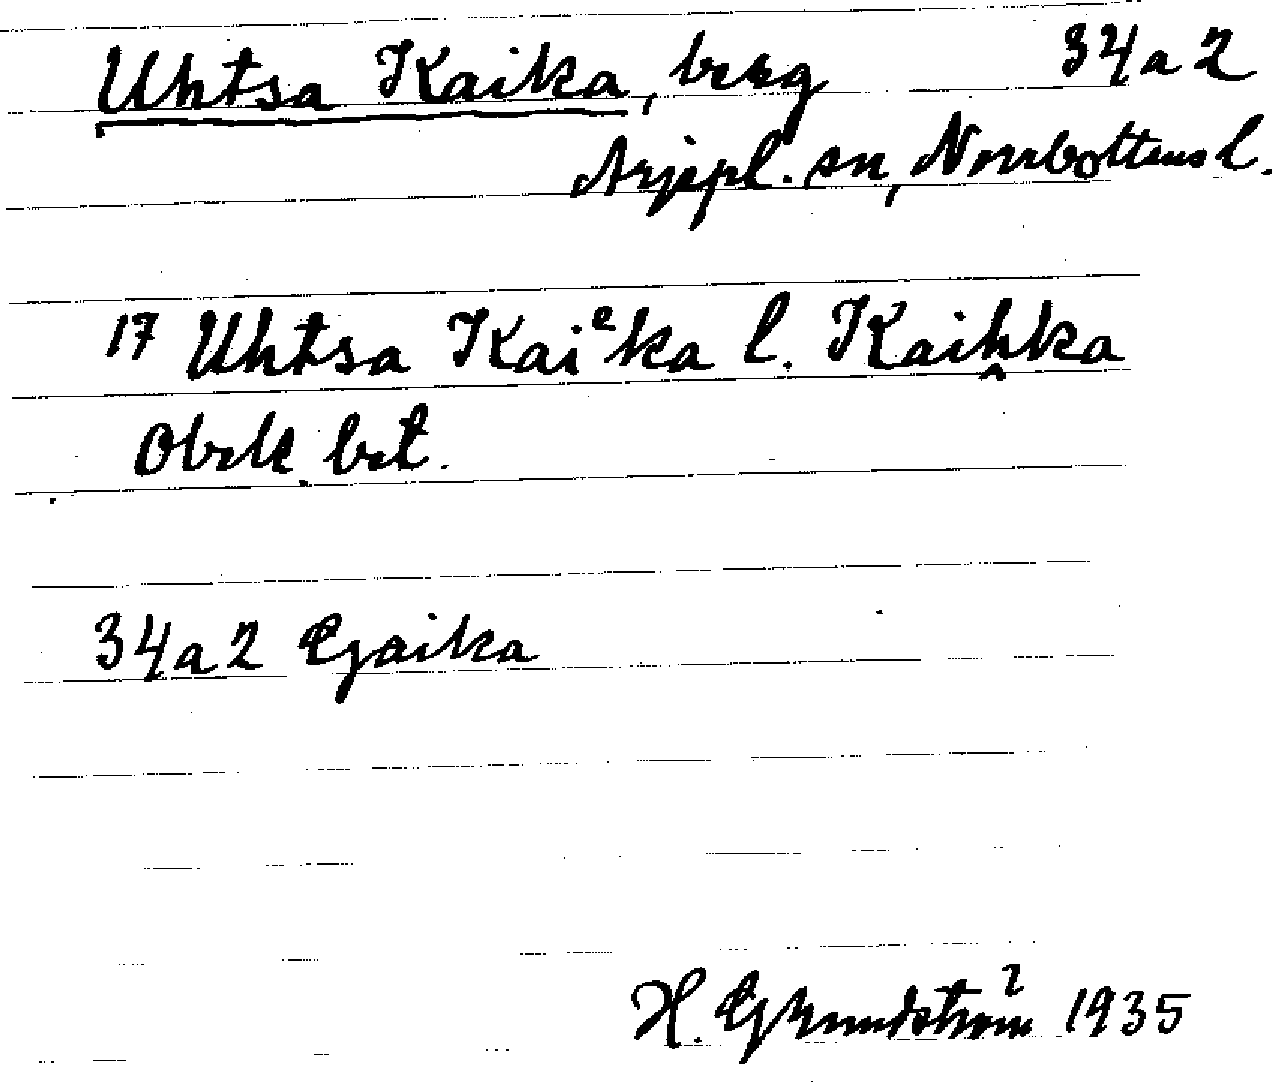 Uhtsa Kaika, berg 34a2
Arjepl. sn, Norrbottens l.
17 Uhtsa Kaiᵉka l. Kaiḫka
Obek bet.
34a2 Gaika
H. Grundström 1935